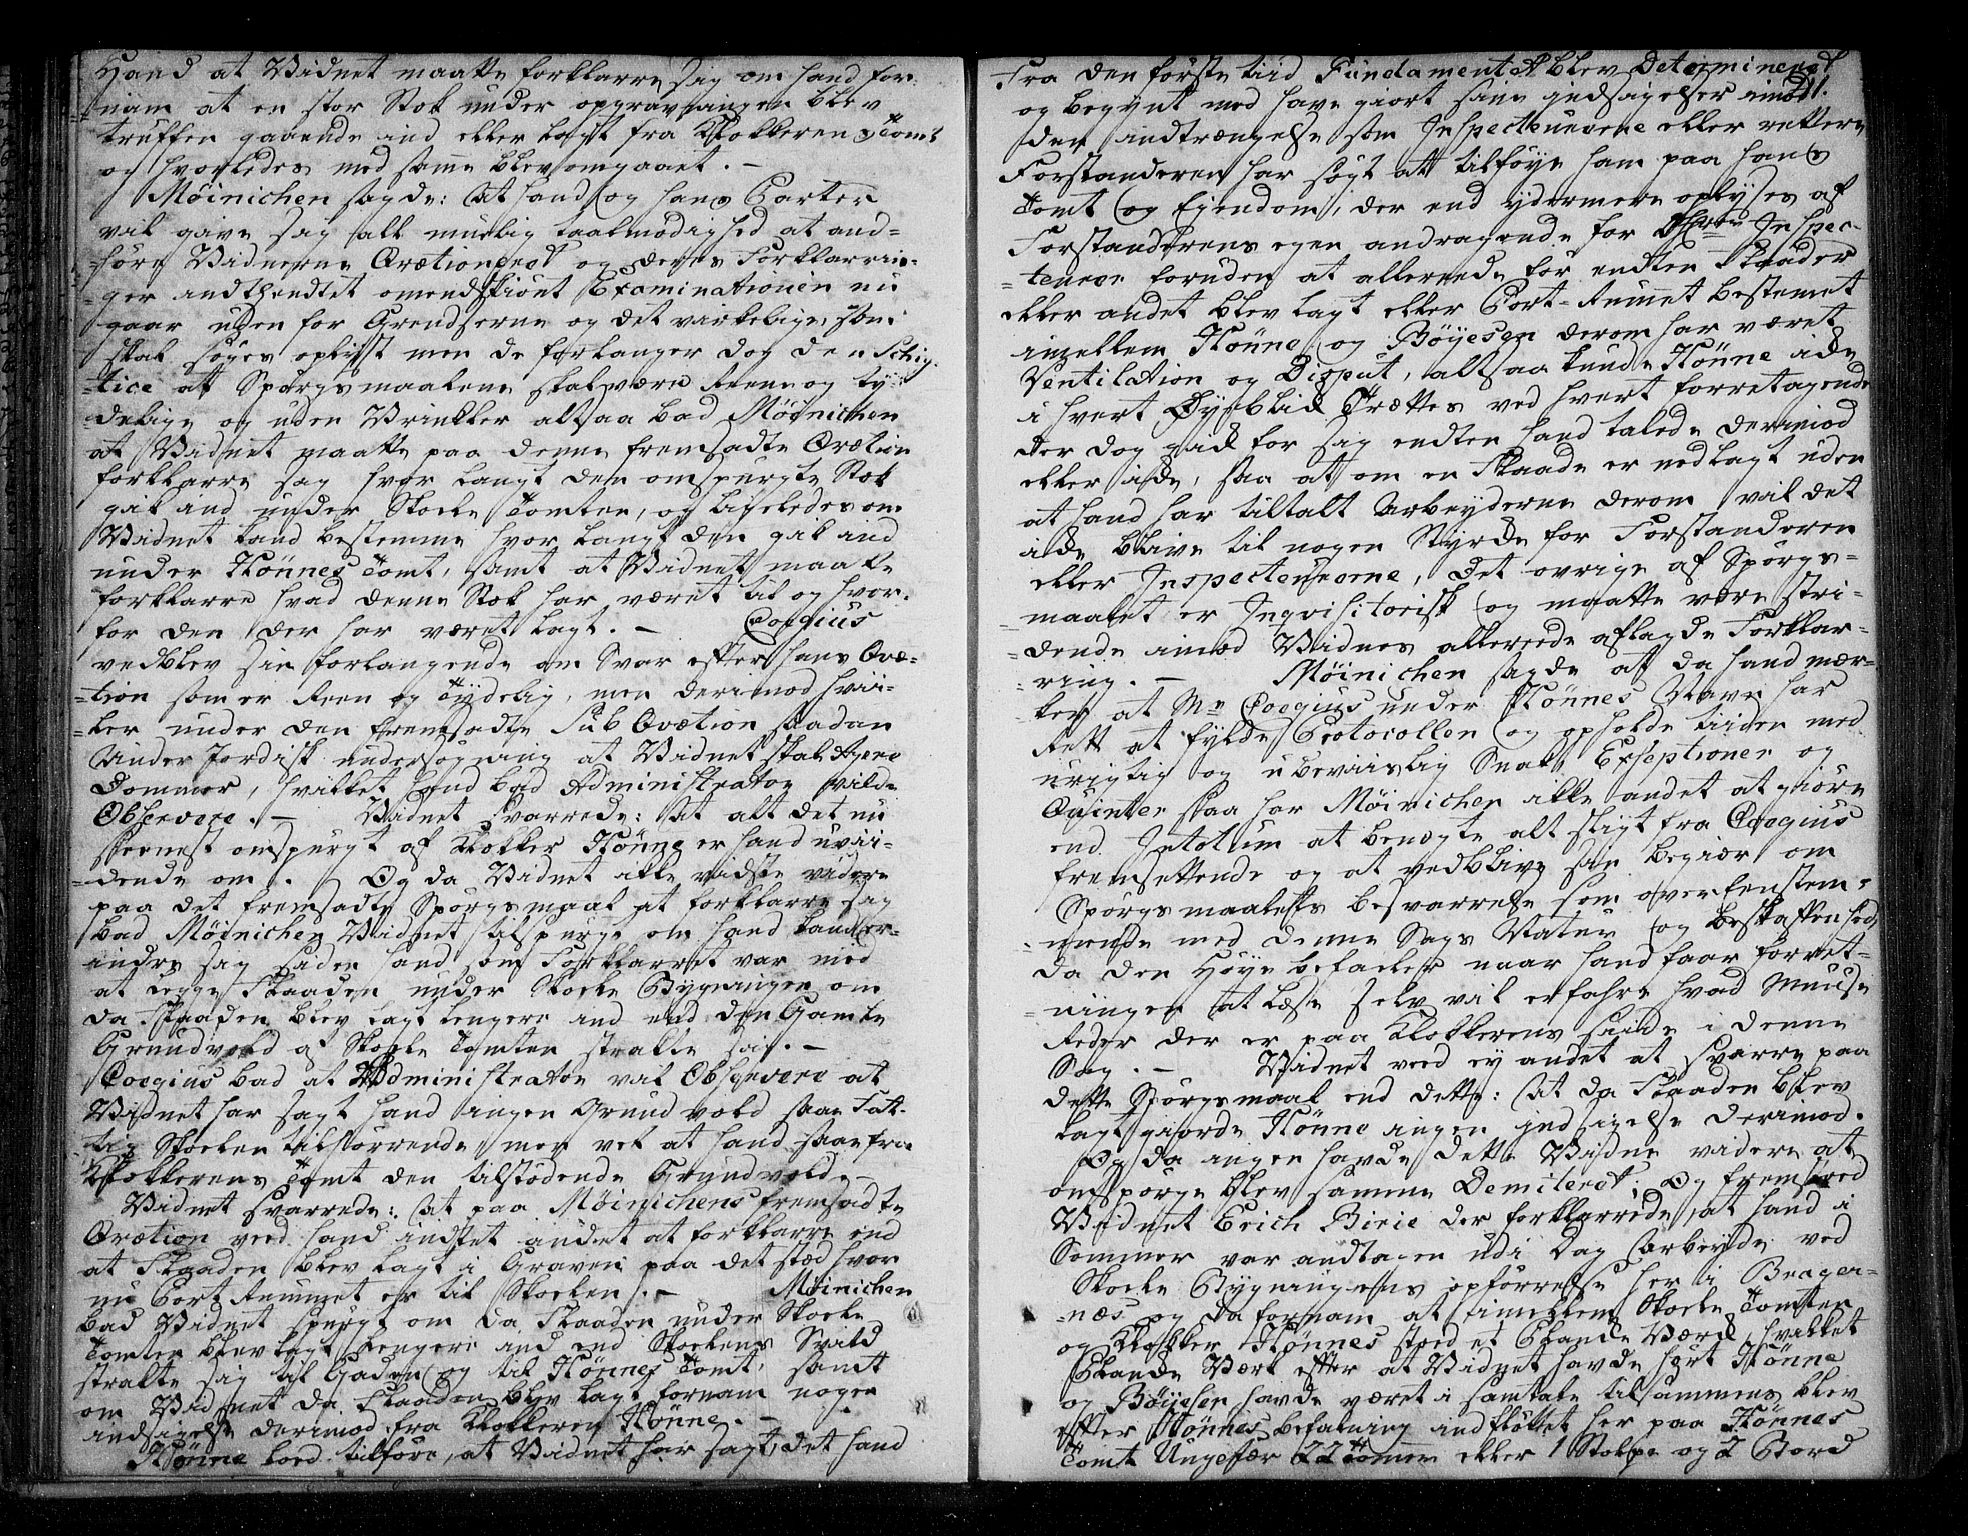 Hand at Vidnet maatte forklarre sig om hand for-
-nam at en stor Stok under opgravningen blev
truffen gaaende ind eller lagt fra Klokkerens Tomt
og hvorledes med samme blev omgaaet. –
Möinichen sagde: At hand og hans Parter
vil give sig all muelig taalmodighed at and-
-höre Vidnernes Qvæstionerst og deres Forklarrin-
-ger indthendtet omendskiönt Examinationen nu
gaar uden for Grendserne og det varkelige, som
skal söges oplyst men de forlanger dog den
-tice at Spörgsmaalene skal være Reene og ty-
delige og uden Vrinkler altsaa bad Möinichen
at Vidnet maatte paa denne fremsadte Qvæstion
forklarre sag hvor langt den omspurgte Stok
gik ind under Skole Tomten, og ligeledes om
Vidnet kand bestemme hvor langt den gik ind
under Hönnes Tomt, samt at Vidnet maatte
forklarre hvad denne Stok har været til og hvor-
for den der har været lagt. – Coegius
vedblev sin forlangende om Svar efter hans Qvæ-
-tion som er Reen og Tydelig, men derimod hvii-
-ler under den fremsadte Sub Qvæstion saadan
Under Jordisk undersögning at Vidnet skal Agere
Dommer, hvilket hand bad Administrator vilde
Observere. – Vidnet Svarrede: At alt det nu
sernest omspurgt af Klokker Hönne er hand uvii-
-dende om. Og da Vidnet ikke vidste videre
paa det fremsadte Spörgsmaal at forklarre sag
bad Möinichen Vidnet tilspurgt om hand kand er-
indre sag siden hand som Forklarret var med
at legge Skaaden under Skole Bygningen om
da Skaaden blev lagt lengere ind end den Gamle
Grundvold af Skole Tomten strakte sig. –
Coegius bad at Administrator vil Observere at
Vidnet har sagt hand ingen Grundvold saae Fatt-
-tig Skolen tilhörrende men vel at hand saae fra
Klokkerens Tomt den tilstödende Grundvold. –
Vidnet svarrede: At paa Möinichens fremsadte
Qvæstion veed hand indtet andet at forklarre end
at Skaaden blev lagt i Graven paa det stæd hvor
nu Port Rummet er til Skolen. – Möinichen
bad Vidnet spurgt om da Skaaden under Skole
Tomten blev lagt lengere ind end Skolens Svild
strakte sig til Gaden og til Hönnes Tomt, samt
om Vidnet da Skaaden blev lagt fornam nogen
indsigelse derimod fra Klokkeren Hönne. –
Hönne loed tilföre, at Vidnet har sagt, det hand
Fra den förste tiid Fundamentet blev Determineret
og begynt med have giort sine indsigelser imod
den indtrængelse som Inspecteurerne eller rettere
Forstanderen har sögt at tilföye ham paa hans
Tomt og Eiendom, der end ydermere oplyses af
Forstanderens egen andragende for Herr Inspec-
-teurer foruden at allerede för endten Skaader
eller andet blev lagt eller Port-Rummet bestemet
imellem Hönne og Böyesen derom har været
Ventilation og Disput, altsaa kunde Hönne icke
i hvert Öyeblik Trættes ved hvert foretagende
der dog gik for sig endten hand talede derimod
eller icke, saa at om en Skaade er nedlagt uden
at hand har tiltalt Arbeyderne derom vil det
icke blive til nogen Styrke for Forstanderen
eller Inspecteurerne, Det övrige af Spörgs-
-maalet er Inqvisitorisk og maatte være stri-
-dende imod Vidnes allerede aflagde Forklar-
-ring. – Möinichen sagde at da hand mær-
-ker at Mr Coegius under Hönnes Navn har
Rett at fylde Protocollen og opholde tiden med
urigtig og ubeviislig Snak, Exseptioner og
Quinter saa har Möinichen ikke andet at giöre
end Intotum at benægte alt sligt fra Coegius
fremsettende og at vedblive sin begiær om
Spörgsmaalets besvarrelse som overeenstem-
-mende med denne Sags Natur og Beskaffenhed,
da den Höye befaler naar hand faar forret-
-ningen at Læse selv vil erfahre hvad Muuse
Reder der er paa Klokkerens siide i denne
Sag. – Vidnet veed ey andet at svarre paa
dette Spörgsmaal end dette: At da Skaaden blev
lagt giorde Hönne ingen indsigelse derimod.
Og da ingen havde dette Vidne videre at
omspörge blev samme Demiterit. Og fremstoed
Vidnet Erich Birie der forklarrede, at hand i
Sommer var andtagen udi Dag Arbeyde ved
Skole Bygningens opförrelse her i Brager-
-næs og da fornam at imellem Skole Tomten
og Klokker Hönnes stoed et Plankeværk, hvilket
Planke Værk efter at Vidnet havde hört Hönne
og Böyesen havde været i samtale tilsammens blev
efter Hönnes befalning indflöttet her paa Hönnes
Tomt Ungefær 22 Tommer eller 1 Stolpe og 2 Bord